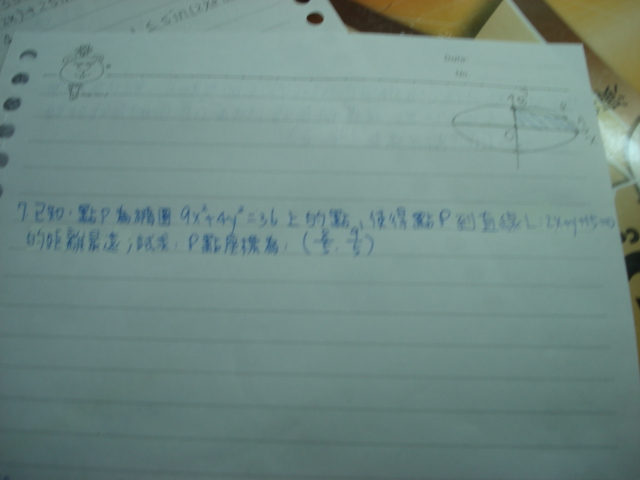 Date:
No:
7.已知:點P為橢圓 9x²+4y²=36 上的點,使得點P到直線L:2x+y+15=0
的距離最遠,試求:P點座標為:(8/5, 9/5)